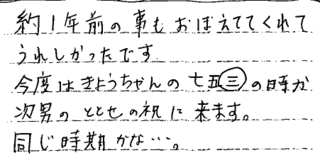 約1年前の事もおぼえててくれて
うれしかったです
今度はきょうちゃんの七五三の時か
次男のととせの祝に来ます。
同じ時期かな…。